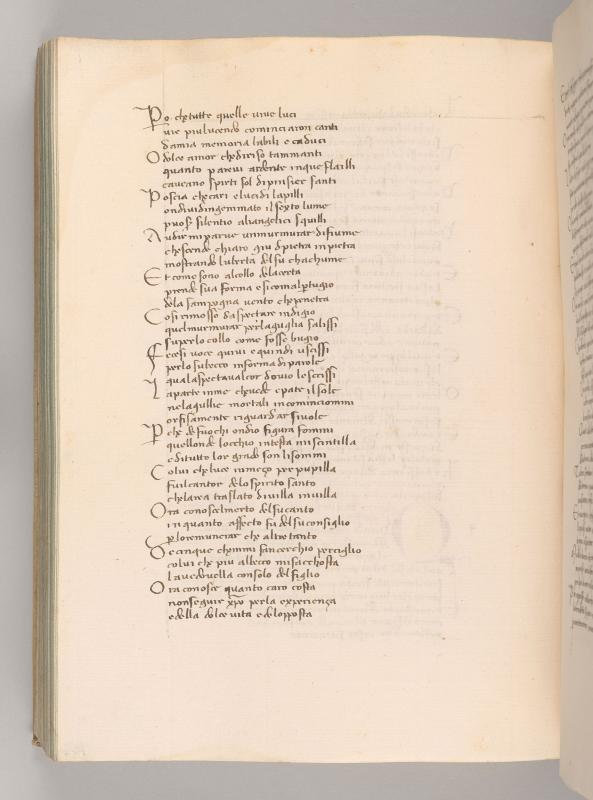 Po che tutte quelle vive luci
vie piu lucendo cominciaron canti
da mia memoria labili e caduci
O dolce amor che diriso tammanti
quanto parevi ardente inque flailli
caveano spirti sol dipinsier santi
Poscia che cari e lucidi lapilli
ondio vidi ingemmato il sexto lume
puoser silentio aliangelici squilli
Audir mi parve un murmurar di fiume
che scende chiaro giu di pietra in pietra
mostrando luberta del su chachume
Et come sono al collo de la cetra
prende sua forma e si comal pertugio
dela sampogna vento che penetra
Cosi rimosso daspectare indigio
quel murmurar per laguglia salissi
su per lo collo come fosse bugio
Fecesi voce quivi e quindi uscissi
per lo su becco in forma di parole
i quale aspectava l cor dovio le scrissi
La parte in me che vede e pate il sole
nelaquilie mortali incominciommi
or fisamente riguardar si vole
Per che de fuochi ondio figura fommi
quelli onde locchio in testa mi scintilla
e di tutto lor grade son li sommi
Colui che luce in meço per pupilla
fu il cantor delo spirito santo
che larca traslato di villa in villa
Ora conosce l merto del su canto
in quanto affecto fu del su consiglio
per lo remunerar che altrettanto
De cinque che mmi fan cerchio per ciglio
colui che piu al becco mi sacchosta
la vedovella consolo del figlio
Ora conosce quanto caro costa
non seguir xpo per la experiença
e della dolce vita e delopposta